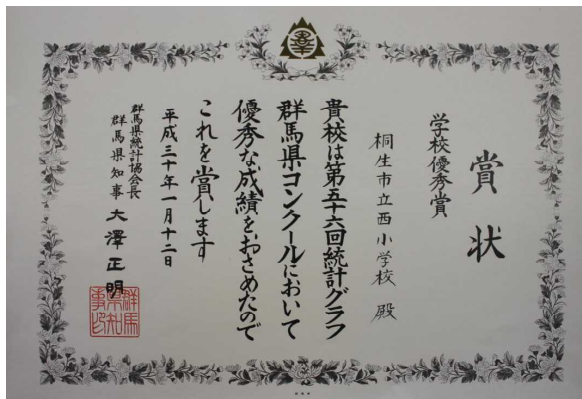 賞状
学校優秀賞
桐生市立西小学校 殿
貴校は第五十六回統計グラフ
群馬県コンクールにおいて
優秀な成績をおさめたので
これを賞します
平成三十年一月十二日
群馬県統計協会長
群馬県知事 大澤正明
群馬
県知
事印